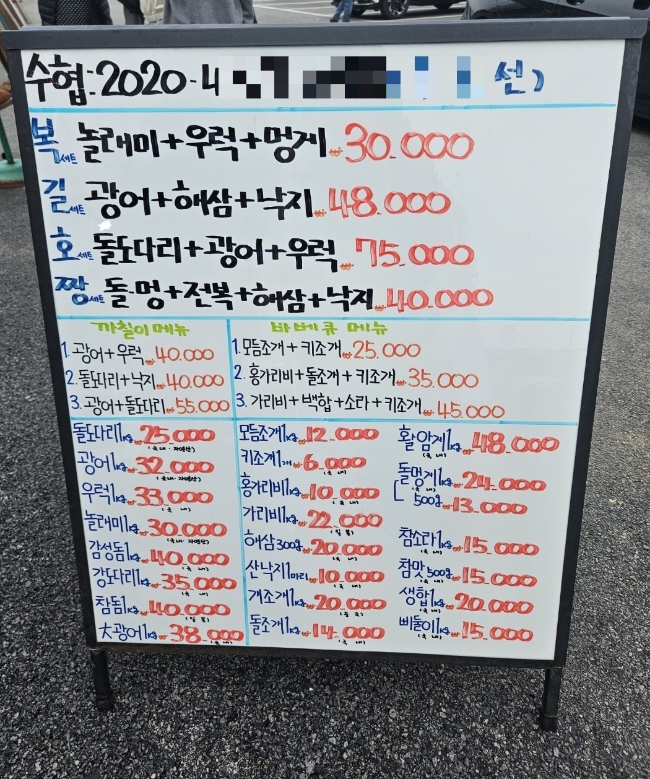 수협:2020-4 선)
복세트 놀래미+우럭+멍게 ₩30.000
길세트 광어+해삼+낙지 ₩48.000
호세트 돌도다리+광어+우럭 ₩75.000
짱세트 돌·멍+전복+해삼+낙지 ₩40.000
까칠이메뉴
1. 광어+우럭 ₩40.000
2. 돌도다리+낙지 ₩40.000
3. 광어+돌도다리 ₩55.000
바베큐 메뉴
1. 모듬조개+키조개 ₩25.000
2. 홍가리비+돌조개+키조개 ₩35.000
3. 가리비+백합+소라+키조개 ₩45.000
돌도다리1kg ₩25.000
(국내·자연산)
광어1kg ₩32.000
(국내·자연산)
우럭1kg ₩33.000
(국내)
놀래미1kg ₩30.000
(국내·자연산)
감성돔1kg ₩40.000
(국내)
강도다리1kg ₩35.000
(국내)
참돔1kg ₩40.000
(일본)
大광어1kg ₩38.000
(국내)
모듬조개1kg ₩12.000
키조개1개 ₩6.000
(국내)
홍가리비1kg ₩10.000
(국내)
가리비1kg ₩22.000
(일본)
해삼300g ₩20.000
(국내)
산낙지1마리 ₩10.000
(국내)
개조개1kg ₩20.000
(중국)
돌조개1kg ₩14.000
(국내)
활암게1kg ₩48.000
(국내)
돌멍게1kg ₩24.000
(국내)
500g ₩13.000
참소라1kg ₩15.000
(국내)
참맛500g ₩15.000
(국내)
생합1kg ₩20.000
(국내)
삐뚤이1kg ₩15.000
(국내)